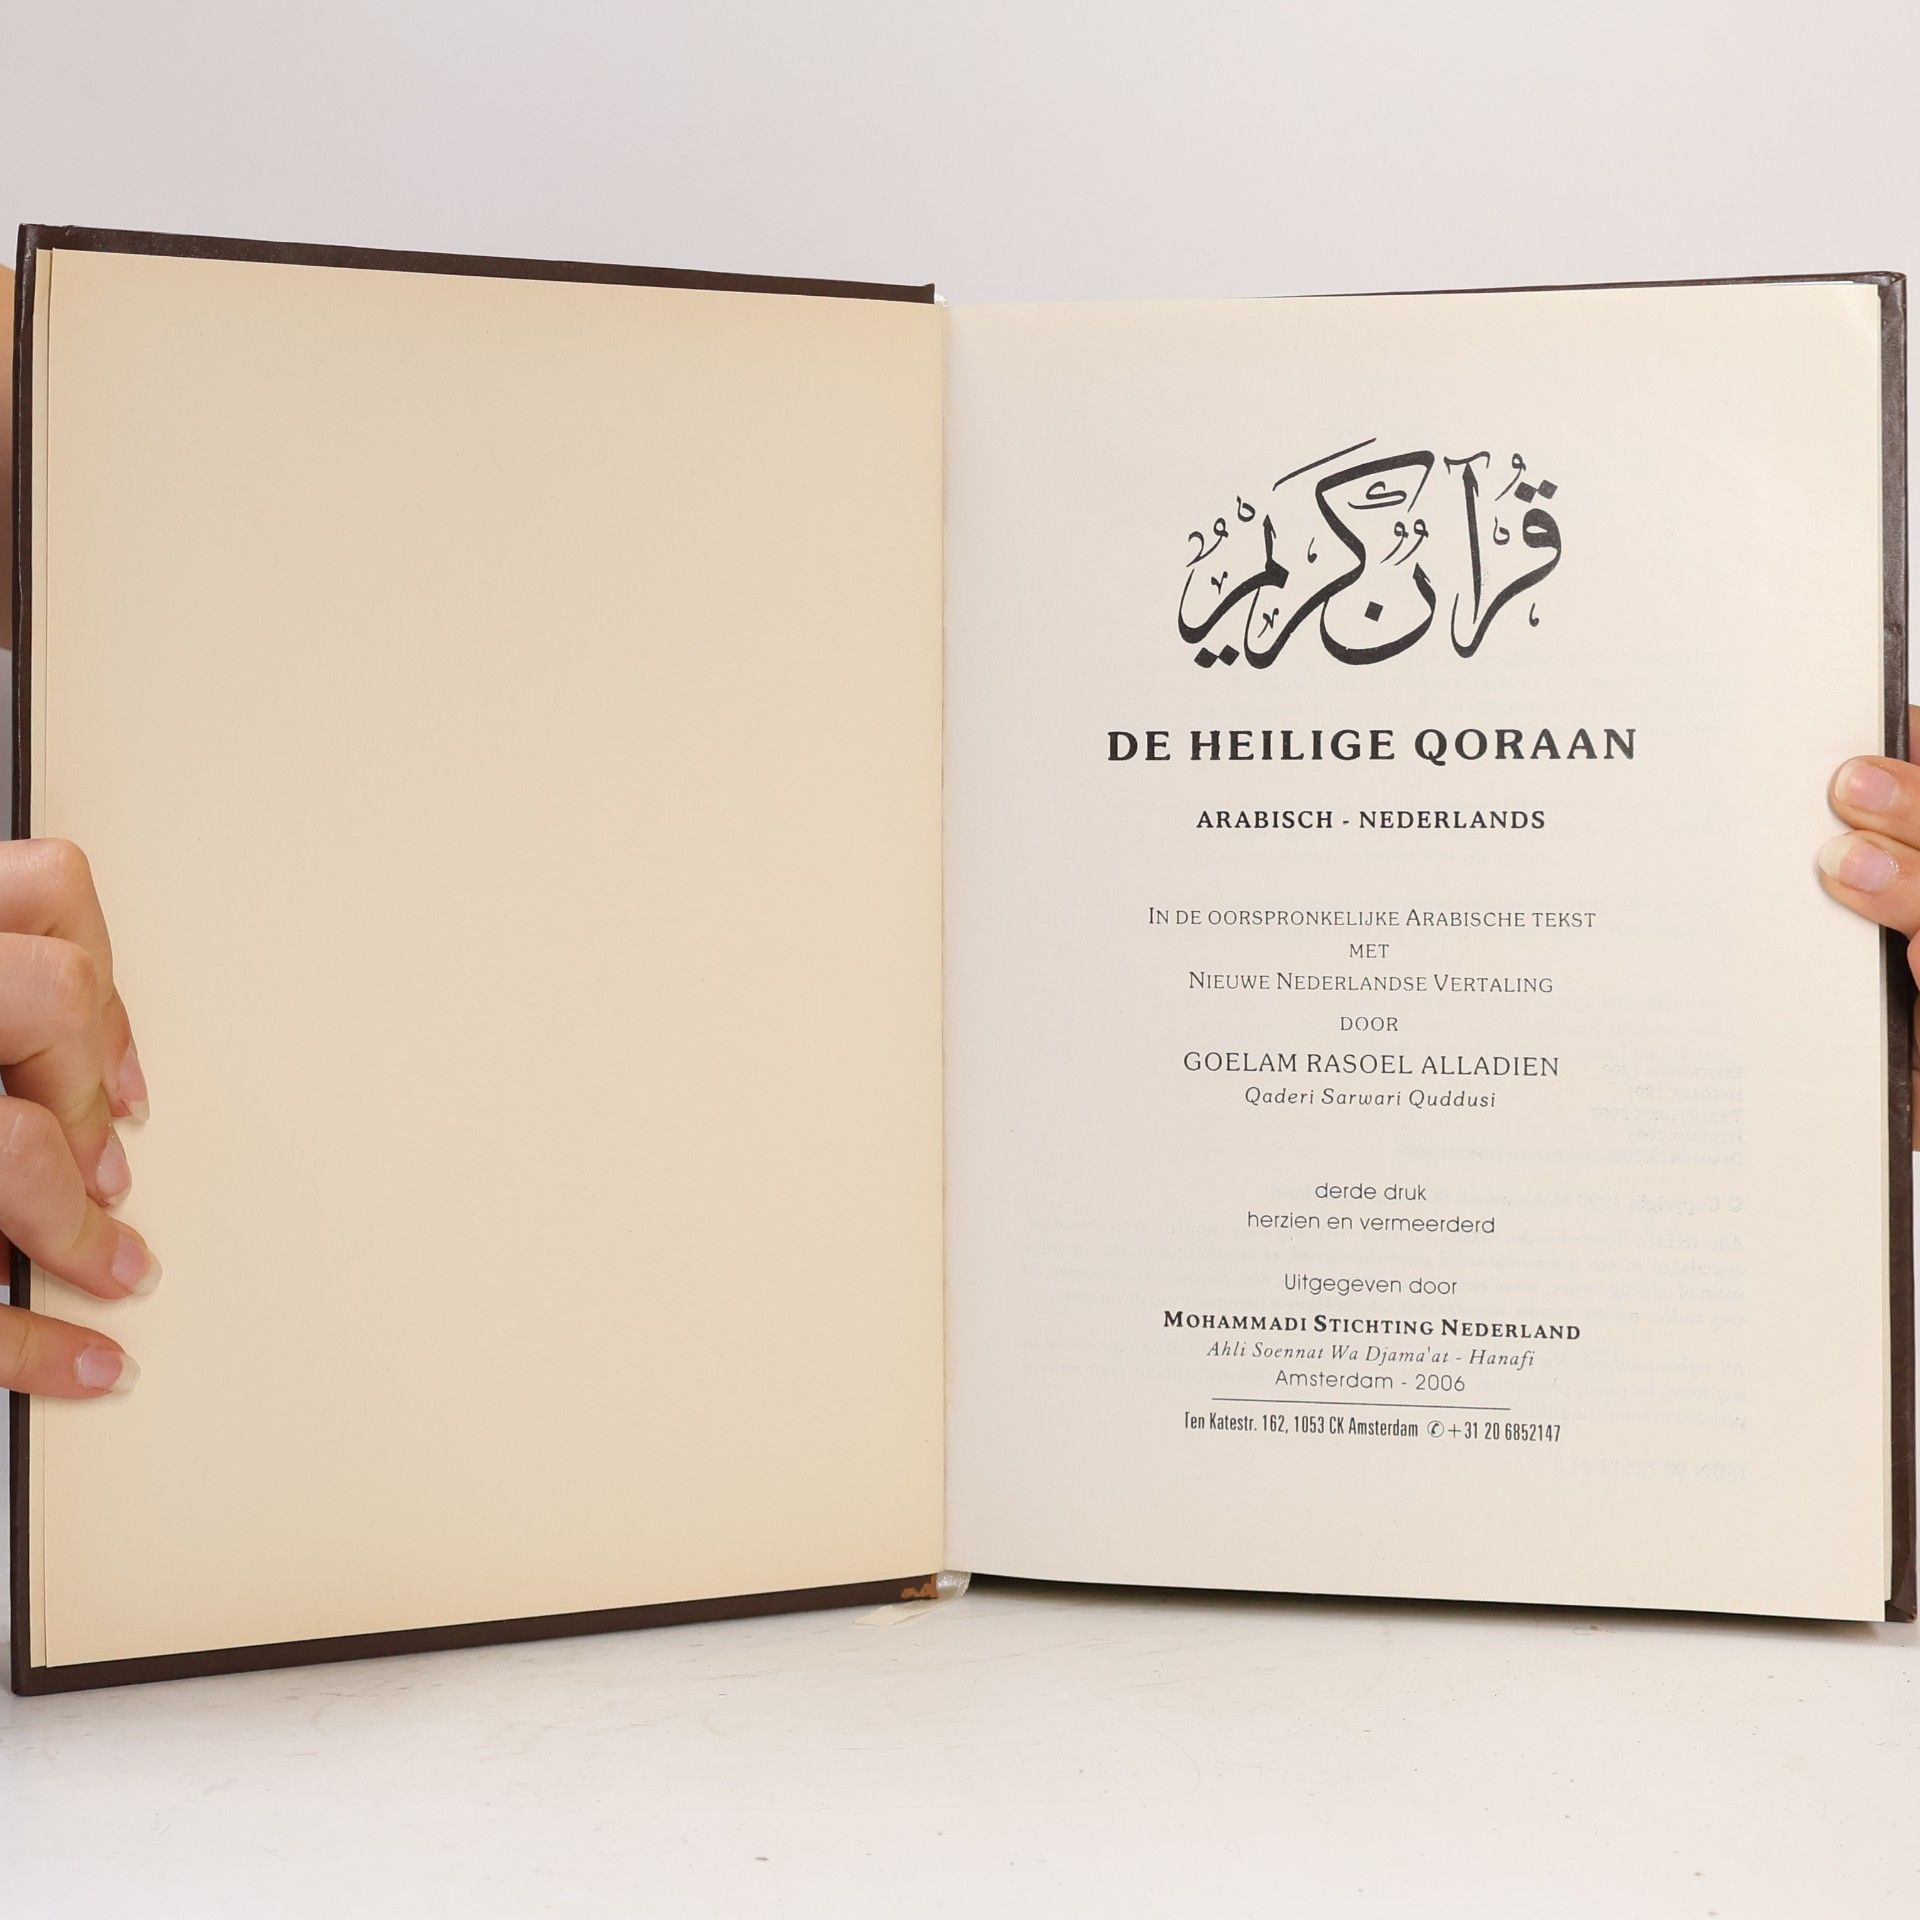 قُرْآنٌ كَرِيْمٌ
DE HEILIGE QORAAN
ARABISCH - NEDERLANDS
IN DE OORSPRONKELIJKE ARABISCHE TEKST
MET
NIEUWE NEDERLANDSE VERTALING
DOOR
GOELAM RASOEL ALLADIEN
Qaderi Sarwari Quddusi
derde druk
herzien en vermeerderd
Uitgegeven door
MOHAMMADI STICHTING NEDERLAND
Ahli Soennat Wa Djama'at - Hanafi
Amsterdam - 2006
Ten Katestr. 162, 1053 CK Amsterdam ✆+31 20 6852147